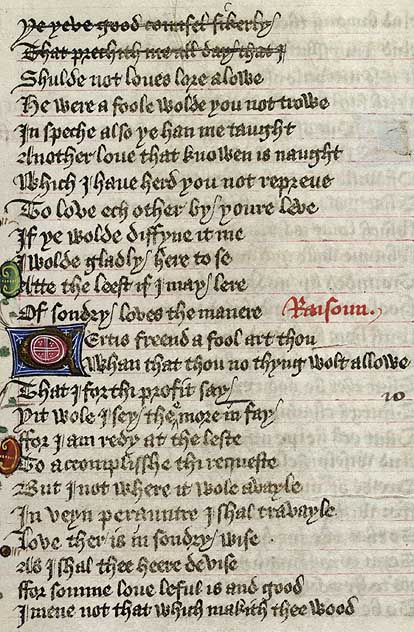 Ye yeve good counsel sikerly
That prechith me all day that I
Shulde not loves lore alowe
He were a foole wolde you not trowe
In speche also ye han me taught
Another love that knowen is naught
Which I have herd you not repreve
To love ech other by youre leve
If ye wolde diffyne it me
I wolde gladly here to se
Atte the leest if I may lere
Of sondry loves the manere Raisoun.
Certis freend a fool art thou
Whan that thou no thyng wolt allowe
That I for thi profit say
Yit wole I sey the more in fay
ffor I am redy at the leste
To accomplisshe thi requeste
But I not where it wole avayle
In veyn perauntre I shal travayle
Love ther is in sondry wise
As I shal thee heere devise
ffor somme love leful is and good
I mene not that which makith thee wood